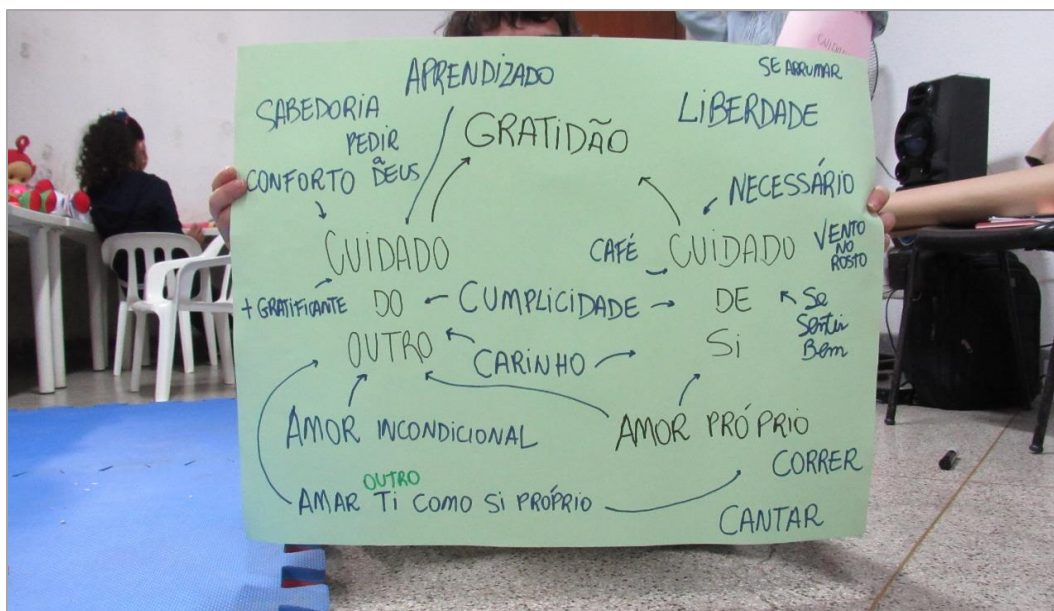 APRENDIZADO
SE ARRUMAR
SABEDORIA
LIBERDADE
GRATIDÃO
PEDIR
a
DEUS
CONFORTO
NECESSÁRIO
CUIDADO
DO
OUTRO
CAFÉ
CUIDADO
DE
Si
VENTO
NO
ROSTO
+ GRATIFICANTE
CUMPLICIDADE
Se
Sentir
Bem
CARINHO
AMOR INCONDICIONAL
AMOR PRÓPRIO
CORRER
OUTRO
AMAR Ti COMO Si PRÓPRIO
CANTAR